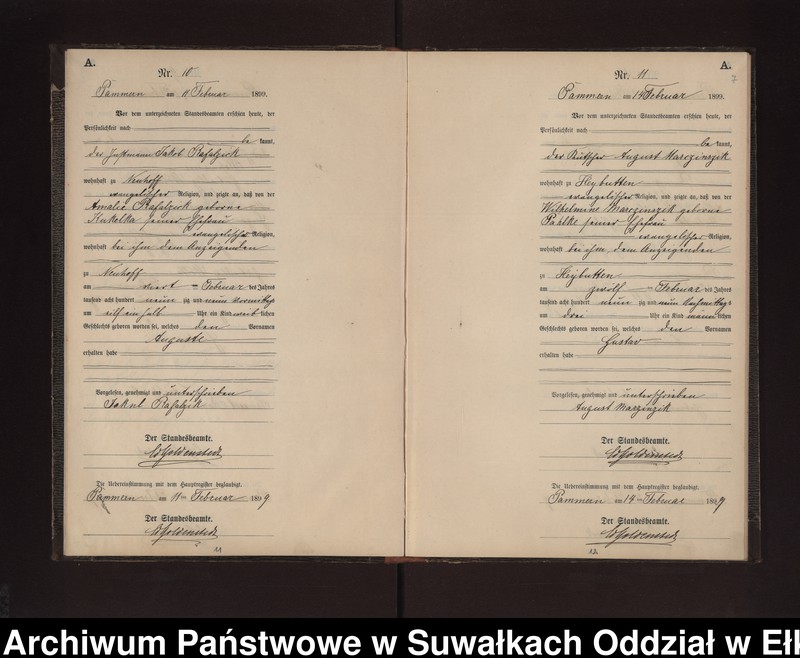 A.
Nr. 10
Pammern am 11 Februar 1899.
Vor dem unterzeichneten Standesbeamten erschien heute, der
Persönlichkeit nach
be kannt,
der Instmann Jakob Rafalzik
wohnhaft zu Neuhoff
evangelischer Religion, und zeigte an, daß von der
Amalie Rafalzik geborene
Kukelka seiner Ehefrau
evangelischer Religion,
wohnhaft bei ihm dem Anzeigenden
zu Neuhoff
am Februar des Jahres
tausend acht hundert neun zig und neun Vormittags
um elf einhalb Uhr ein Kind weib lichen
Geschlechts geboren worden sei, welches den Vornamen
Auguste
erhalten habe
Vorgelesen, genehmigt und unterschrieben
Jakob Rafalzik
Der Standesbeamte.
Die Uebereinstimmung mit dem Hauptregister beglaubigt.
Pammern am 11 ten Februar 1899
Der Standesbeamte.
11
A.
7
Nr. 11
Pammern am 14 Februar 1899.
Vor dem unterzeichneten Standesbeamten erschien heute, der
Persönlichkeit nach
be kannt,
der Kutscher August Marozinszik
wohnhaft zu Heybutten
evangelischer Religion, und zeigte an, daß von der
Wilhelmine Marozinszik geborene
seiner Ehefrau
evangelischer Religion,
wohnhaft bei ihm, dem Anzeigenden
zu Heybutten
am zwölf ten Februar des Jahres
tausend acht hundert neun zig und neun Nachmittags
um drei Uhr ein Kind männ lichen
Geschlechts geboren worden sei, welches den Vornamen
Gustav
erhalten habe
Vorgelesen, genehmigt und unterschrieben
August Marzinzik
Der Standesbeamte.
Die Uebereinstimmung mit dem Hauptregister beglaubigt.
Pammern am 14 ten Februar 1899
Der Standesbeamte.
12
Archiwum Państwowe w Suwałkach Oddział w Ełk